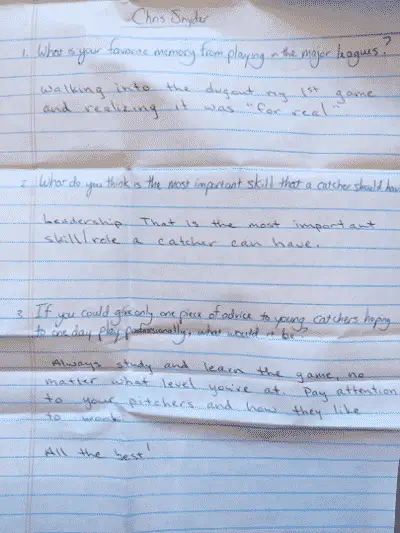 Chris Snyder
1. What is your favorite memory from playing in the major leagues?
Walking into the dugout my 1st game
and realizing it was "for real"
2. What do you think is the most important skill that a catcher should have
Leadership. That is the most important
skill/role a catcher can have.
3. If you could give only one piece of advice to young catchers hoping
to one day play professionally, what would it be?
Always study and learn the game, no
matter what level you're at. Pay attention
to your pitchers and how they like
to work.
All the best!